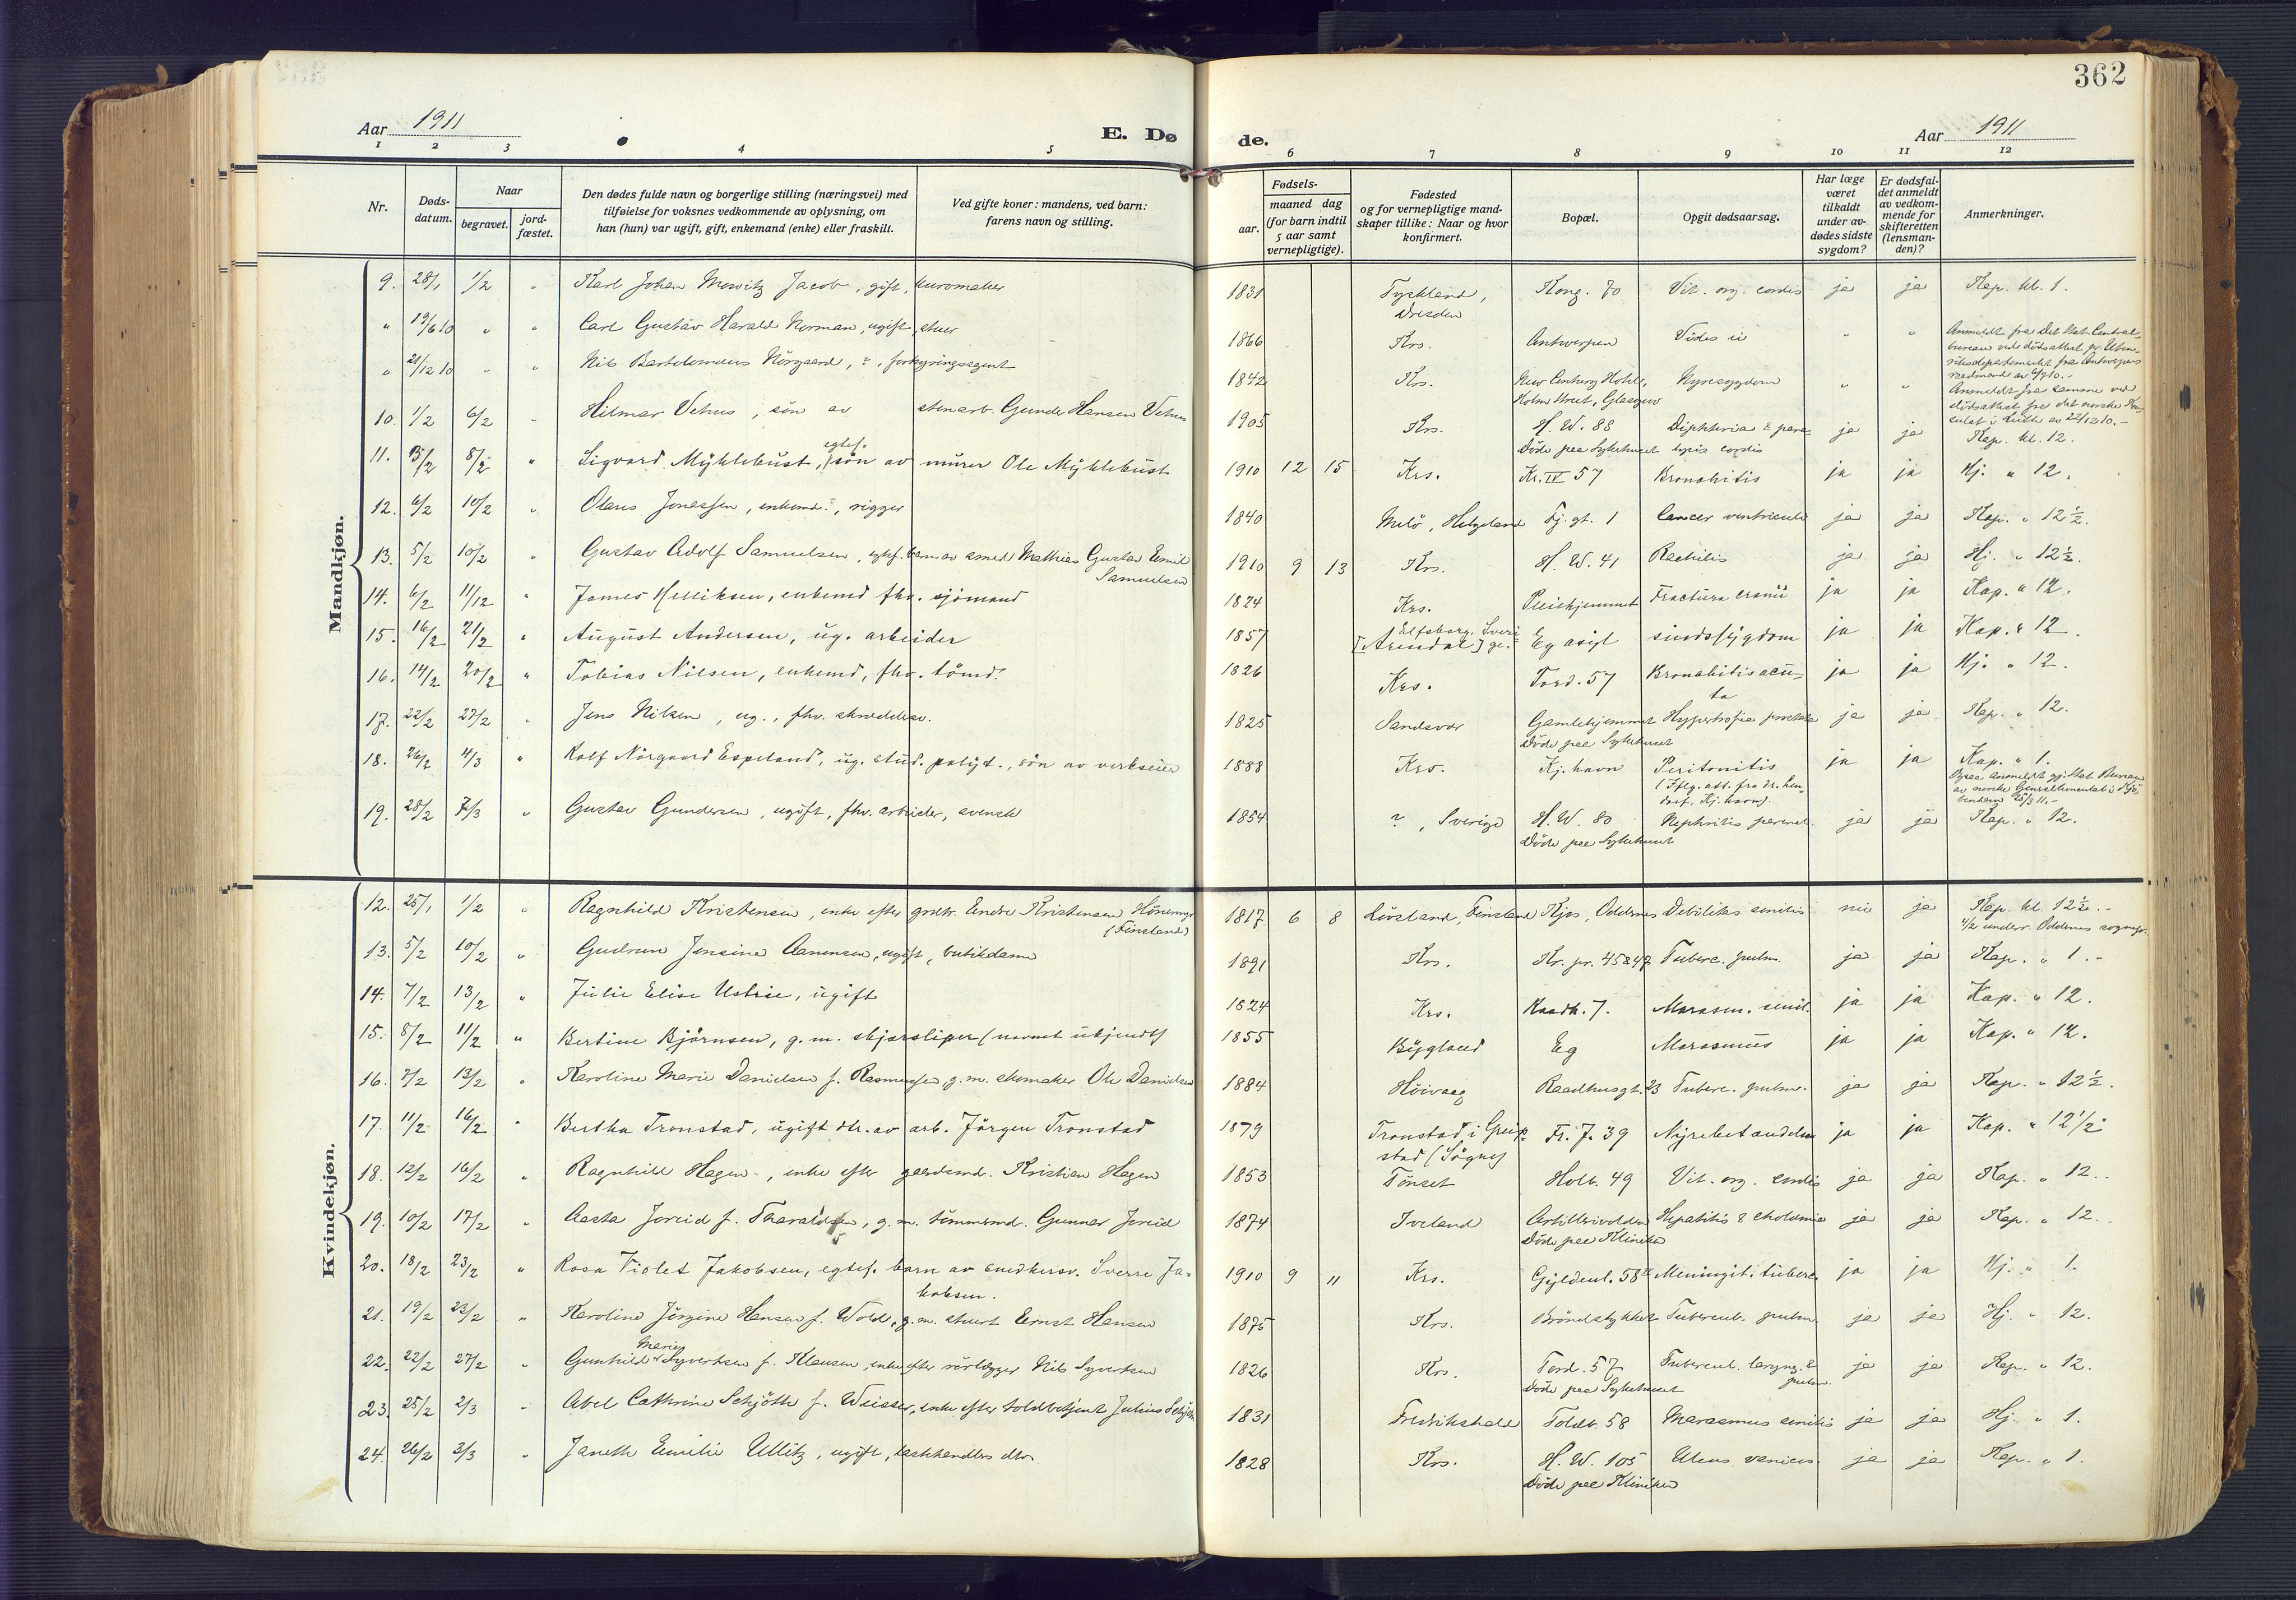 362
Aar 1911 E. Dø de. Aar 1911
1 2 3 4 5 6 7 8 9 10 11 12
Nr. Døds-datum. Naar begravet. jord-fæstet. Den dødes fulde navn og borgerlige stilling (næringsvei) med tilføielse for voksnes vedkommende av oplysning, om han (hun) var ugift, gift, enkemand (enke) eller fraskilt. Ved gifte koner: mandens, ved barn: farens navn og stilling. Fødsels- aar. maaned dag (for barn indtil 5 aar samt vernepligtige). Fødested og for vernepligtige mand-skaper tillike: Naar og hvor konfirmert. Bopæl. Opgit dødsaarsag. Har læge været tilkaldt under av-dødes sidste sygdom? Er dødsfal-det anmeldt av vedkom-mende for skifteretten (lensman-den)? Anmerkninger.
Mandkjøn.
9. 28/1 1/2 " Karl Johan Jacob, gift, 1831 Tyskland, Dresden Kong. 70 Vit. org. cordis ja ja Kap. kl. 1.
" 19/6 10 " " Carl Gustav Harald Norman, ugift, stuer 1866 Krs. Antwerpen Vides ei " "
" 21/12 10 " " Nils Bartolomæus Nörgaard, ?, forhyringsagent 1842 Krs. Holm Street, Glasgow Nyresygdom " "
10. 1/2 6/2 " Hilmar Vehus, søn av stenarb. Gunder Hansen Vehus 1905 Krs. H. W. 88 Døde paa Sykehuset Diphteria & para-lysis cordis ja ja Kap. kl. 12.
11. 8/2 " Sigvard Myklebust, egtef. søn av murer Ole Myklebust 1910 12 15 Krs. Kr. IV 57 Bronchitis ja ja Hj. " 12.
12. 6/2 10/2 " Olaus Jonassen, enkemd., rigger 1840 Melø, Helgeland Fj. gt. 1 Cancer ventriculi ja ja Kap. " 12½.
13. 5/2 10/2 " Gustav Adolf Samuelsen, egtef. barn av smed Mathias Gustav Emil Samuelsen 1910 9 13 Krs. H. W. 41 Rachitis ja ja Hj. " 12½.
14. 6/2 11/12 " James Helliksen, enkemd fhv. sjømand 1824 Krs. Pleiehjemmet Fractura cranii ja ja Kap. " 12.
15. 16/2 21/2 " August Andersen, ug. arbeider 1857 Elfsborg. Sveri-ge. [Arendal] Eg asyl sindssygdom ja ja Kap. " 12.
16. 14/2 20/2 " Tobias Nilsen, enkemd, fhv. tömd. 1826 Krs. Tord. 57 Bronchitis acu-ta ja ja Hj. " 12.
17. 22/2 27/2 " Jens Nilsen, ug., fhv. skræddersv. 1825 Sandsvær Gamlehjemmet Døde paa Sykehuset Hypertrofia prostata ja ja Kap. " 12.
18. 26/2 4/3 " Rolf Nörgaard Espeland, ug. stud. polyt., søn av verkseier 1888 Krs. Kj.havn Peritonitis ja ja Kap. " 1.
19. 28/2 7/3 " Gustav Gundersen, ugift, fhv. arbeider, svensk 1854 ?, Sverige H. W. 80 Døde paa Sykehuset Nephritis parench. ja ja Kap. " 12.
Kvindekjøn.
12. 25/1 1/2 " Ragnhild Kristensen, enke efter grdbr. Endre Kristensen Hönemyr (Finsland) 1817 6 8 Lövland, Finsland Kjos, Oddernes Debilitas senilis nei ja Kap. kl. 12½.
4/2 underr. Oddernes sognepr.
13. 5/2 10/2 " Gudrun Jensine Aanensen, ugift, butikdame 1891 Krs. Kr. pr. 45&47 Tuberc. pulm. ja ja Kap. " 1.
14. 7/2 13/2 " Julie Elise Ustrie, ugift 1824 Krs. Raadh. 7. Marasm. senil. ja ja Kap. " 12.
15. 8/2 11/2 " Bertine Bjørnsen, g.m. skjærsliper (navnet ukjendt) 1855 Bygland Eg Marasmus ja ja Kap. " 12.
16. 7/2 13/2 " Karoline Marie Danielsen f. Rasmussen g.m. skomaker Ole Danielsen 1884 Höivaag Raadhusgt. 23 Tuberc. pulm. ja ja Kap. " 12½.
17. 11/2 16/2 " Bertha Tronstad, ugift dtr. av arb. Jørgen Tronstad 1879 Tronstad i Greip-stad (Søgne) Fr. 7. 39 Nyrebetændelse ja ja Kap. " 12½
18. 12/2 16/2 " Ragnhild Hagen, enke efter gaardmd. Kristian Hagen 1853 Tönset Holb. 49 Vit. org. cordis ja ja Kap. " 12.
19. 10/2 17/2 " Aasta Joreid f. Taraldsen, g.m. tömmermd. Gunnar Joreid 1874 Iveland Artillerivolden Døde paa Kliniken Hepatitis & cholæmie ja ja Kap. " 12.
20. 18/2 23/2 " Rosa Violet Jakobsen, egtef. barn av snedkersv. Sverre Ja-kobsen. 1910 9 11 Krs. Gyldenl. 58 Meningit. tuberc. ja ja Hj. " 1.
21. 19/2 23/2 " Karoline Jörgine Hansen f. Wold, g.m. stuert Ernst Hansen 1875 Krs. Bröndstykket Tubercul. pulm. ja ja Hj. " 12.
22. 22/2 27/2 " Gunhild Marie Syvertsen f. Klausen, enke efter rörlægger Nils Syvertsen 1826 Krs. Tord. 57 Døde paa Sykehuset Tubercul. laryng. & pulm. ja ja Kap. " 12.
23. 25/2 2/3 " Abel Cathrine Schjöth f. Weisser, enke efter toldbetjent Julius Schjöth 1831 Fredrikshald Toldb. 58 Marasmus senilis ja ja Hj. " 1.
24. 26/2 3/3 " Janeth Emilie Ullitz, ugift, dtr. 1828 Krs. H. W. 105 Døde paa Kliniken Ulcus ja ja Kap. " 1.